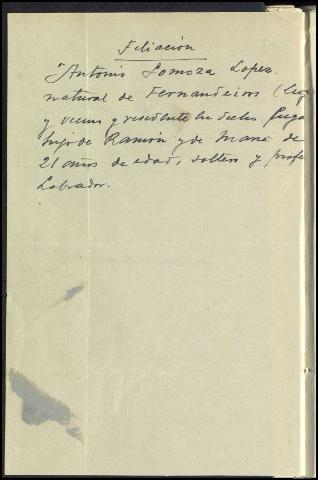 Filiación
"Antonio Somoza Lopez.
natural de Fernandeiros (Lug
y vecino y residente en dicho Luga
hijo de Ramón y de Maria de
21 años de edad, soltero y profe
Labrador.